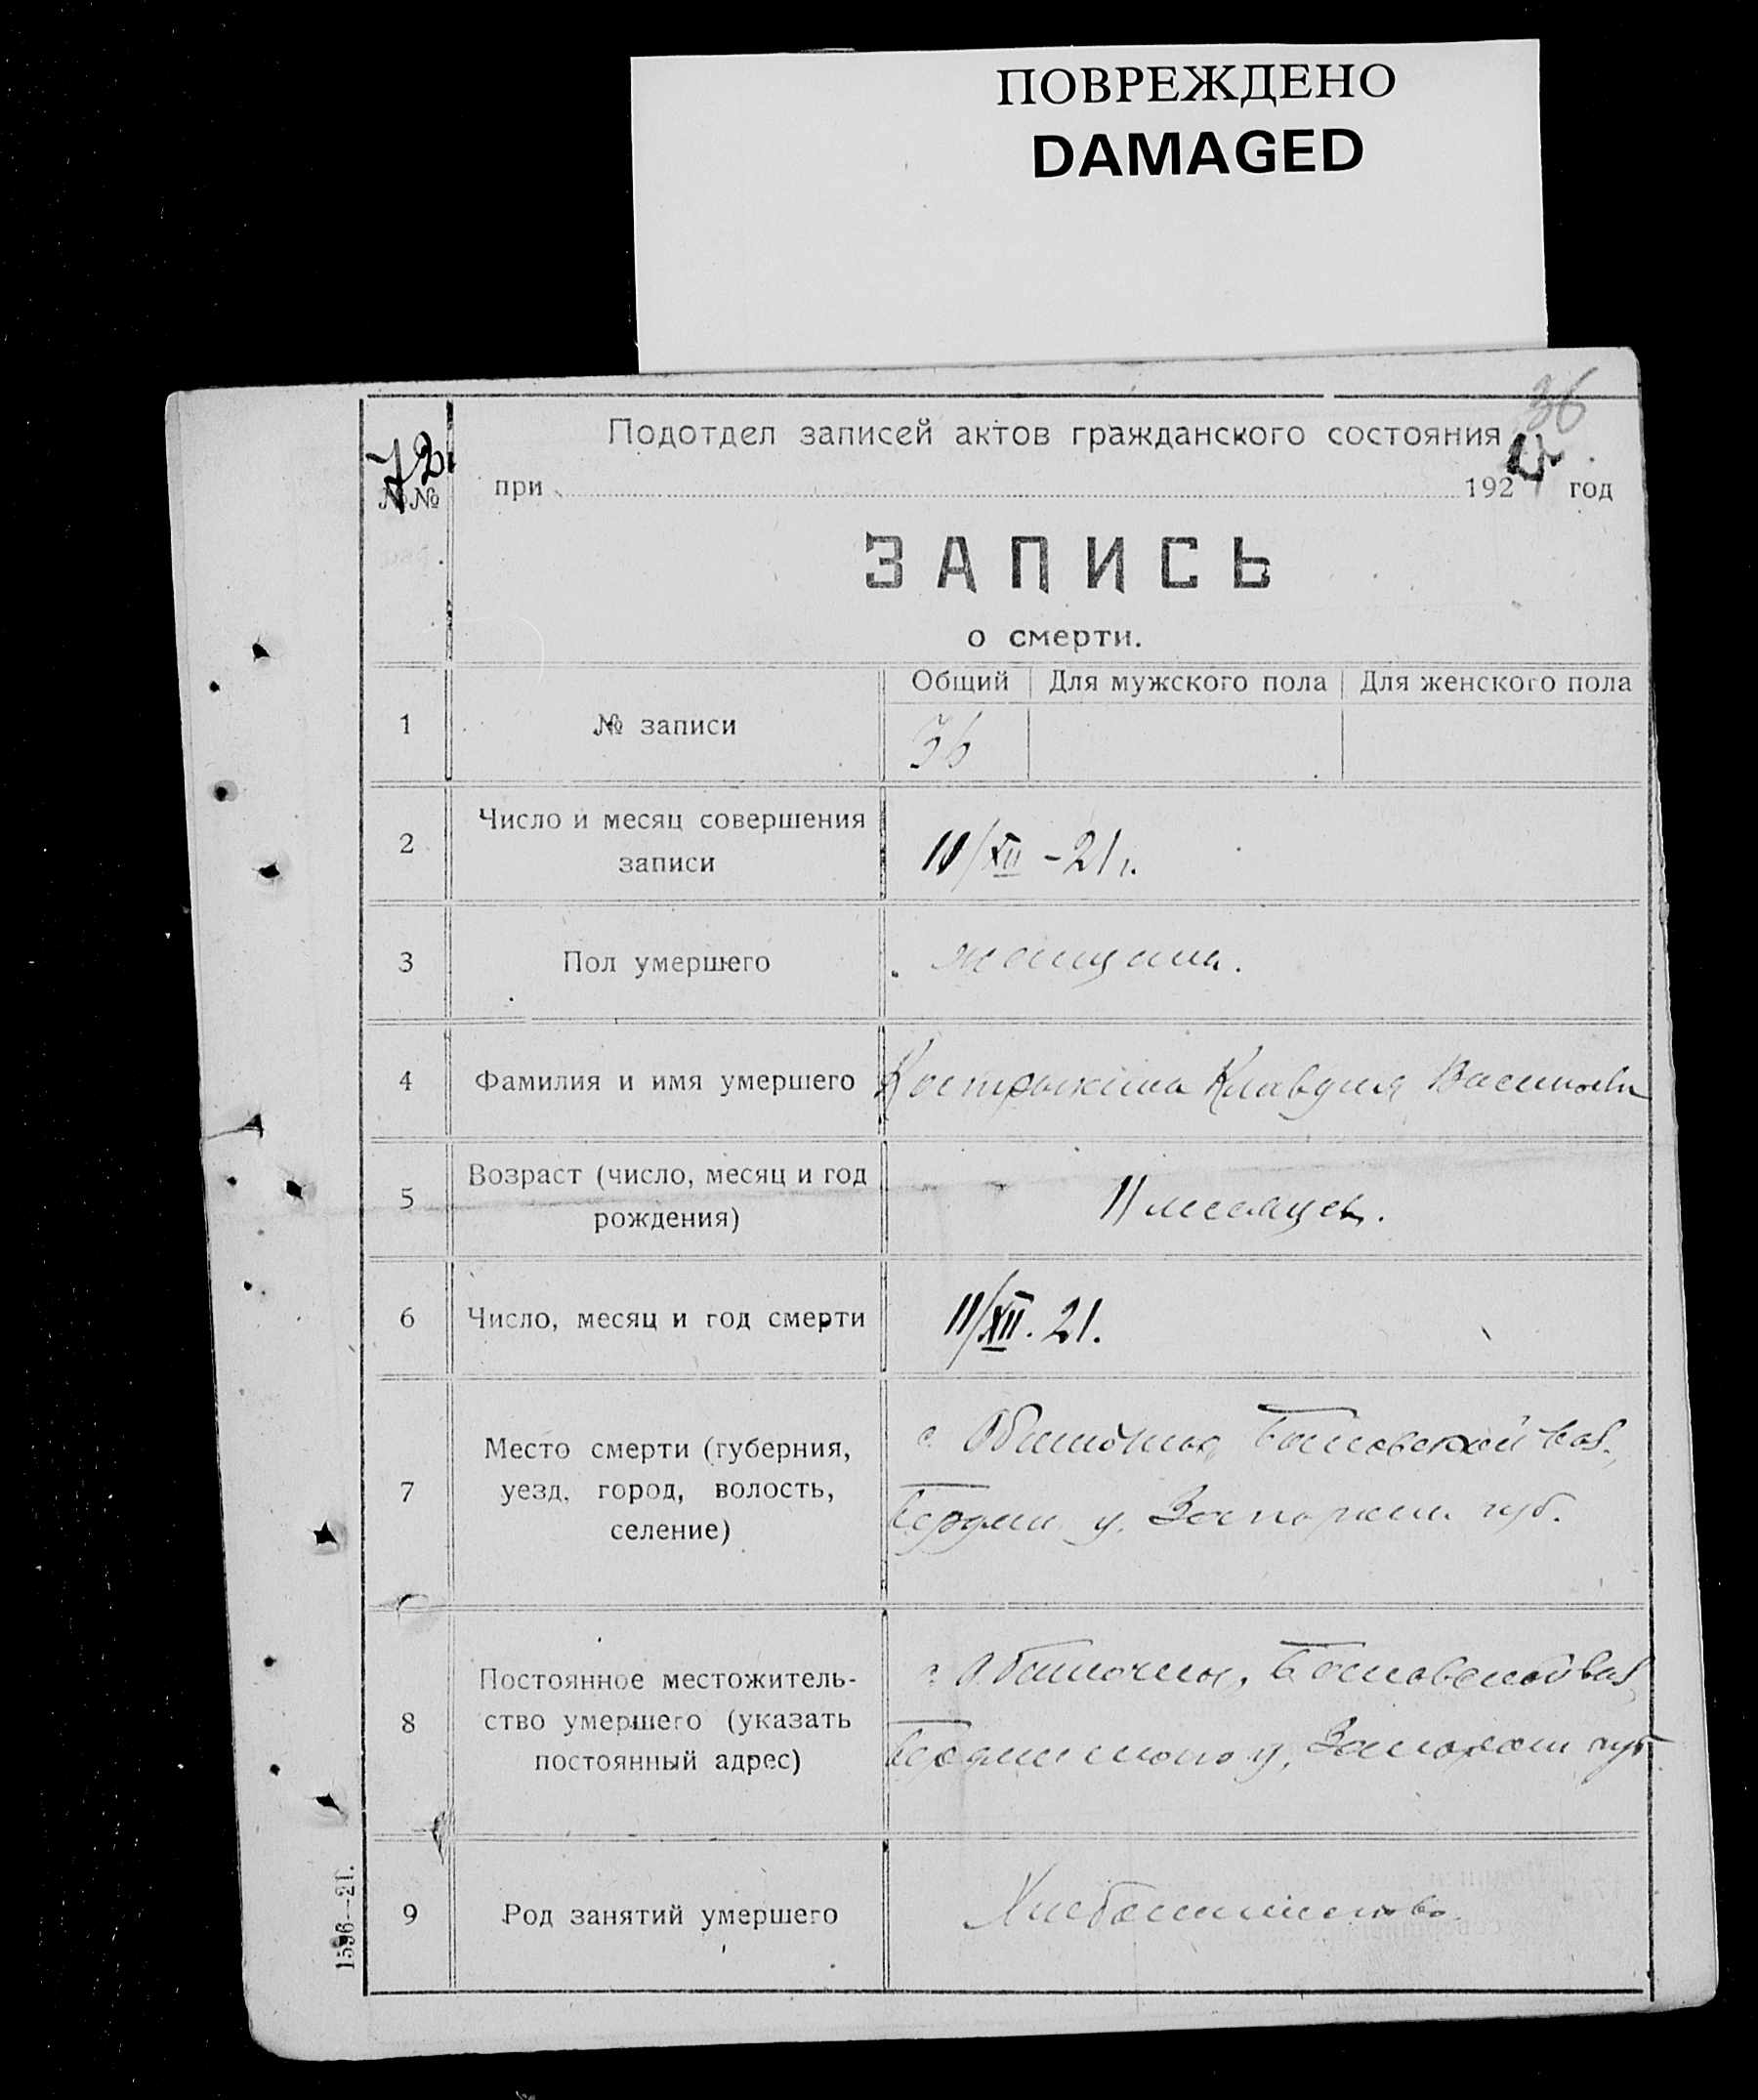 ПОВРЕЖДЕНО
DAMAGED
36
72
Подотдел записей актов гражданского состояния
№№ при 192 год
ЗАПИСЬ
о смерти.
Общий Для мужского пола Для женского пола
1 № записи 36
2 Число и месяц совершения
записи
11/XII - 21 г.
3 Пол умершего женщина.
4 Фамилия и имя умершего Кострыкина Клавдия Василье
5 Возраст (число, месяц и год
рождения)
11 месяцев.
6 Число, месяц и год смерти 11/XII. 21.
7 Место смерти (губерния,
уезд, город, волость,
селение)
с. Обиточная вол.,
Бердян. у. Запорож. губ.
8 Постоянное местожитель-
ство умершего (указать
постоянный адрес)
с. Обиточная, вол
Бердянского у, Запорож губ
9 Род занятий умершего Хлебопашество
1596—21.